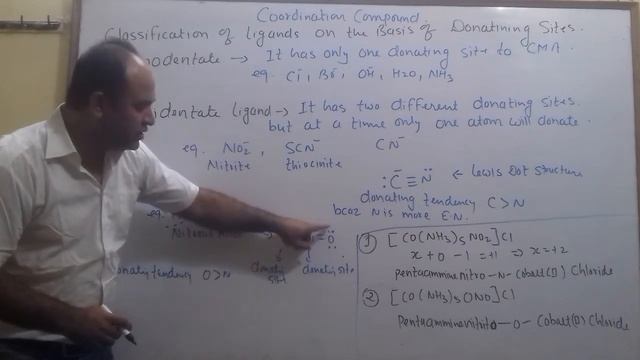 Coordination Compound.
Classification of Ligands on the Basis of Donatining Sites.
odentate → It has only one donating site to CMA
eg. Cl⁻, Br⁻, OH⁻, H2O, NH3
identate ligand → It has two different donating sites.
but at a time only one atom will donate.
eg. NO2⁻, SCN⁻ CN⁻
Nitrite thiocinite
:C̄ ≡ N̈ ← Lewis Dot Structure
donating tendency C>N
bcoz N is more E.N.
eg.
donating site donating site
tendency O>N
① [CO(NH3)5NO2]Cl
x+0-1=+1 ⇒ x=+2
pentaammine nitro-N-Cobalt(II) Chloride
② [CO(NH3)5ONO]Cl
Pentaammine nitrito-O-Cobalt(II) Chloride